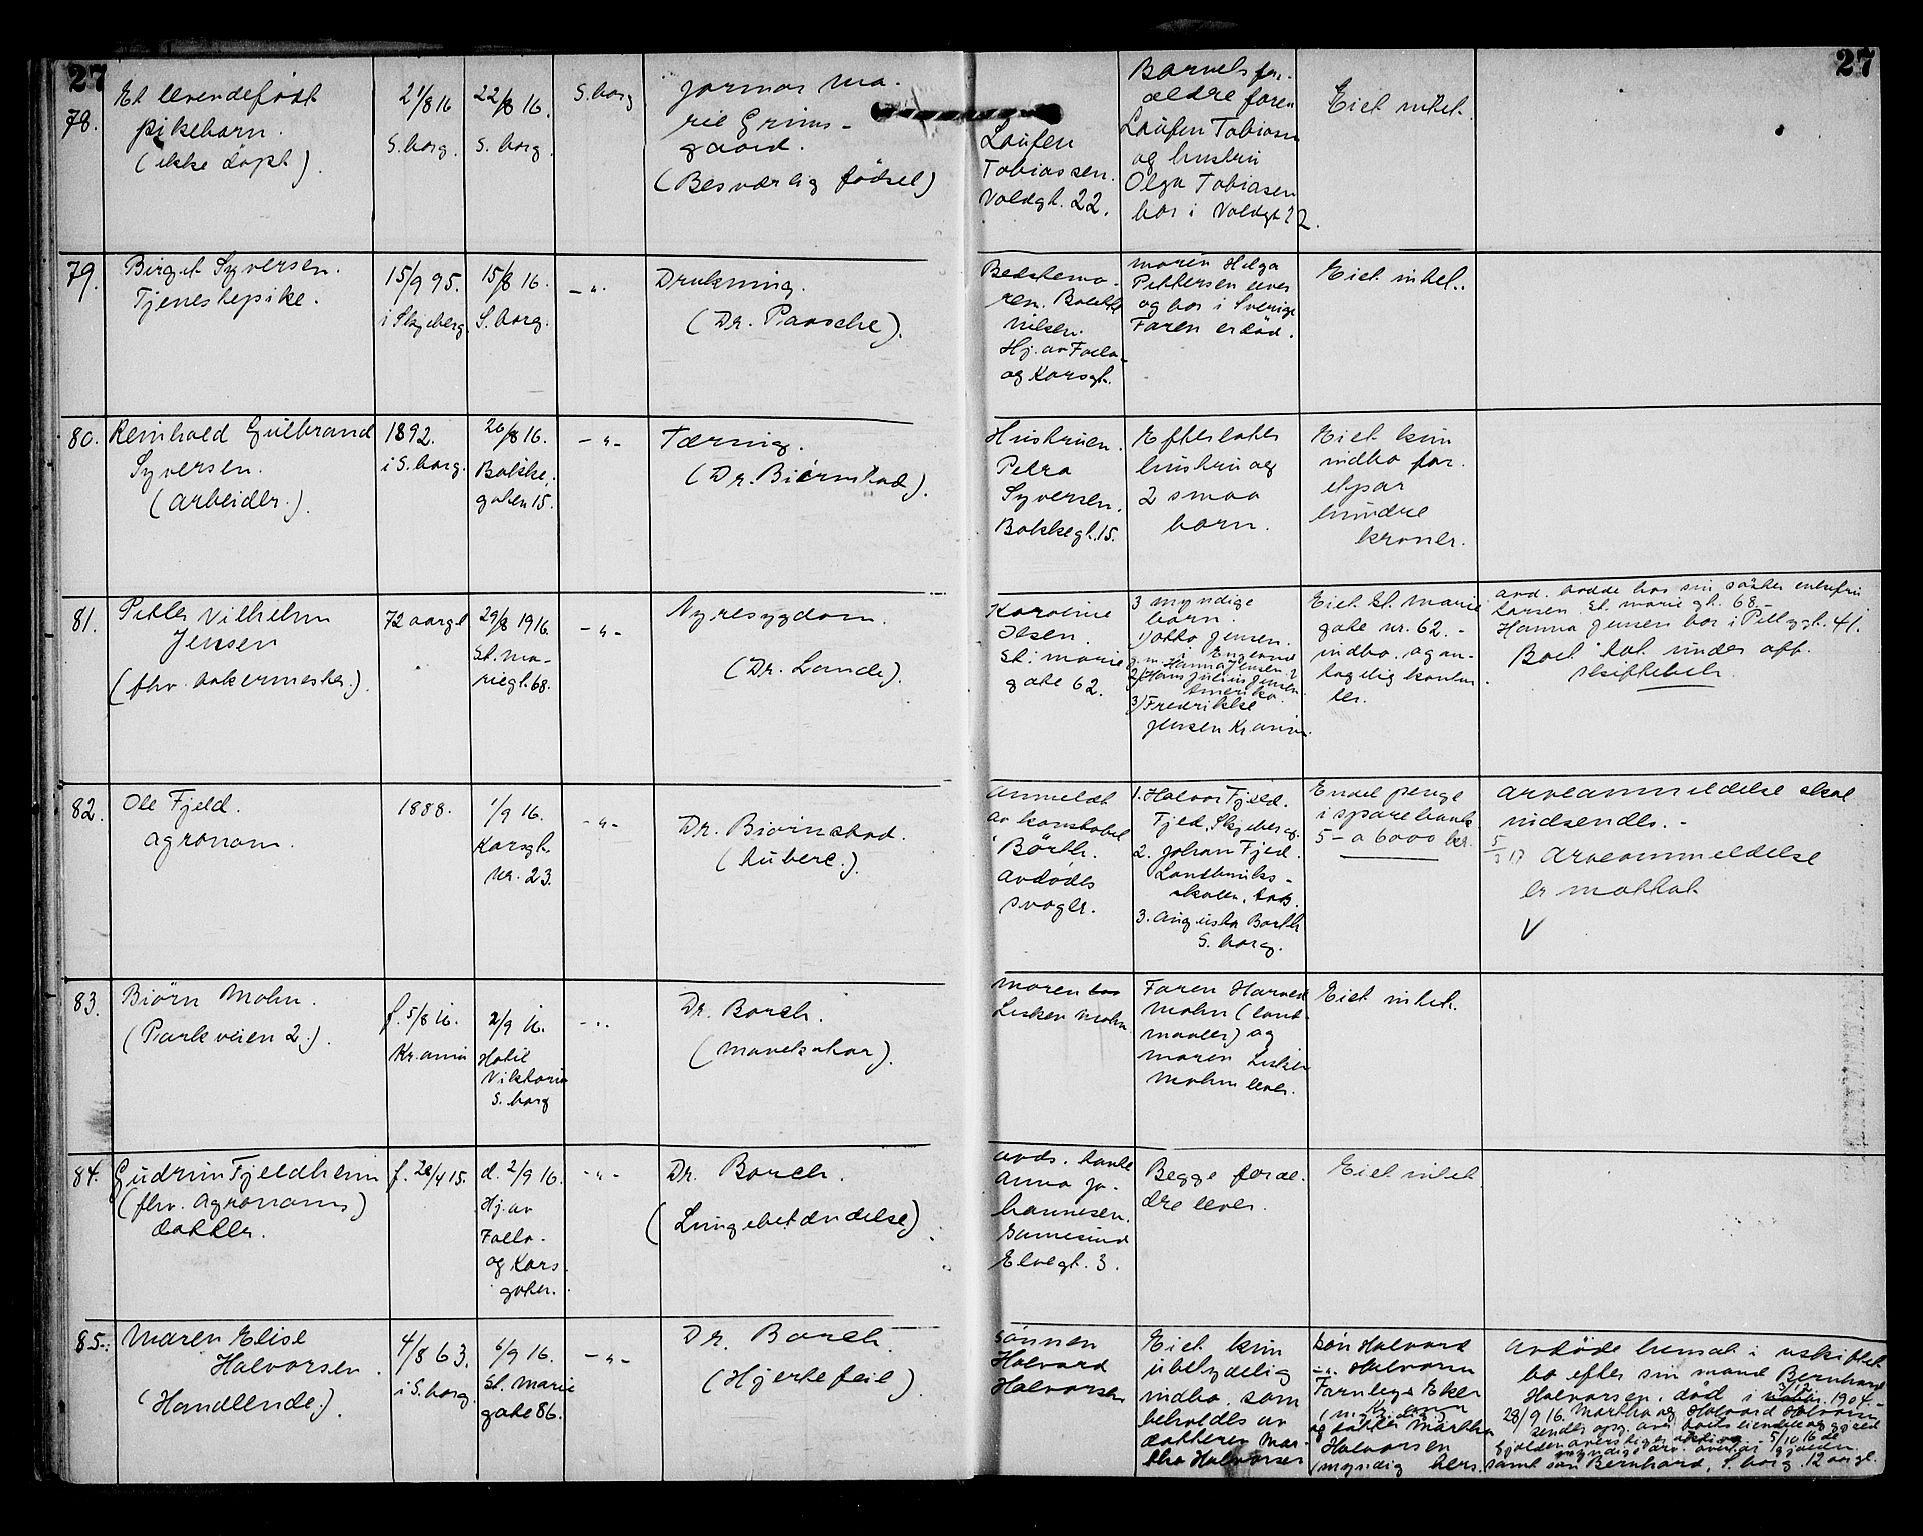 27
27
78.
Et levendefødt
pikebarn.
(ikke døpt).
21/8 16
S.borg.
22/8 16.
S. borg.
S. borg
Jormor Ma-
rie Grims-
gaard.
(Besværlig fødsel)
Laufen
Tobiassen.
Voldgt. 22.
Barnets for-
ældre faren
Laufen Tobiasen
og hustru
Olga Tobiasen
bor i Voldgt 22.
Eiet intet.
79.
Birgit Syversen.
Tjenestepike.
15/9 95.
i Skjeberg
15/8 16.
S. borg.
- " -
Drukning.
(Dr. Paasche).
Bestemo-
ren. Bolette
Nilsen.
Hj. av Faclo-
og Korsgt.
Moren Helga
Pettersen lever
og bor i Sverige
Faren er død.
Eiet intet.
80.
Reinhold Gulbrand
Syversen.
(arbeider.).
1892.
i S. borg.
26/8 16.
Bakke-
gaten 15.
- " -
Tæring.
(Dr. Bjørnstad).
Hustruen.
Petra
Syversen.
Bakkegt. 15.
Efterlater
hustru og
2 smaa
barn.
Eiet kun
indbo for
et par
hundre
kroner.
81.
Petter Vilhelm
Jensen
(fhv. ankermester.).
72 aar gl
29/8 1916.
St. Ma-
riegt. 68.
- " -
Nyresygdom.
(Dr. Lande).
Karoline
Olsen.
St. Marie
gate 62.
3 myndige
barn.
1) Otto Jensen.
i England
g. m. Hanna Jensen.
2) Hans Julius Jensen
Amerika.
3) Fredrikke
Jensen Kr.ania.
Eiet St. Marie
gate nr. 62. -
indbo. og an-
tagelig kontan-
ter.
avd. bodde hos sin søster enkefru
Larsen St. Marie gt. 68.-
Hanna Jensen bor i Pellygt. 41.
Boet tat under off.
skiftebeh.
82.
Ole Fjeld.
agronom.
1888.
1/9 16.
Korsgt.
Nr. 23.
- " -
Dr. Bjørnstad.
(tuberc.).
Anmeldt
av konstabel
Børth.
avdødes
svoger.
1. Halvor Fjeld.
Fjed, Skjeberg.
2. Johan Fjed.
Landbruks-
skolen,
3. Augusta Børth
S. borg.
Endel penge
i sparebank
5- a 6000 kr.
Arveanmeldelse skal
indsendes. -
5/3 17 Arveanmeldelse
er mottat
V
83.
Biørn Mohn.
(Parkveien 2.).
f. 5/8 16.
Kr.ania
2/9 16.
Hotel
Viktoria
S. borg
- " -
Dr. Borch.
(Mavekatar).
Moren
Lisken Mohn.
Faren Harved
Mohn (land-
maaler) og
moren Lisken
Mohn lever.
Eiet intet.
84.
Gudrun Fjeldheim
(fhv. Agronoms)
datter.
f. 28/4 15.
d. 2/9 16.
Hj. av
Faclo-
og Kors
gaten.
- " -
Dr. Borch.
(Lungebetændelse).
avds. tante
Anna Jo-
hannesen.
Elvegt. 3.
Begge foræl-
dre lever.
Eiet intet
85.
Maren Elise
Halvorsen.
(Handlende.).
4/8 63.
i S. borg.
6/9 16.
St. Marie
gate 86.
- " -
Dr. Borch.
(Hjertefeil).
Sønnen
Halvard
Halvorsen
Eiet kun
ubetydelig
indbo, som
beholdes av
datteren Mar-
tha Halvorsen
Søn Halvard
Halvorsen
Farnlegs Eker
og datter Martha
Halvorsen
(myndig hers.
avdøde hensat i uskiftet
bo efter sin mand Bernhard
Halvorsen, død i 1904.-
28/9 16. Martha og Halvard Halvorsen
samt søn Bernhard, S. borg. 12 aar gl.